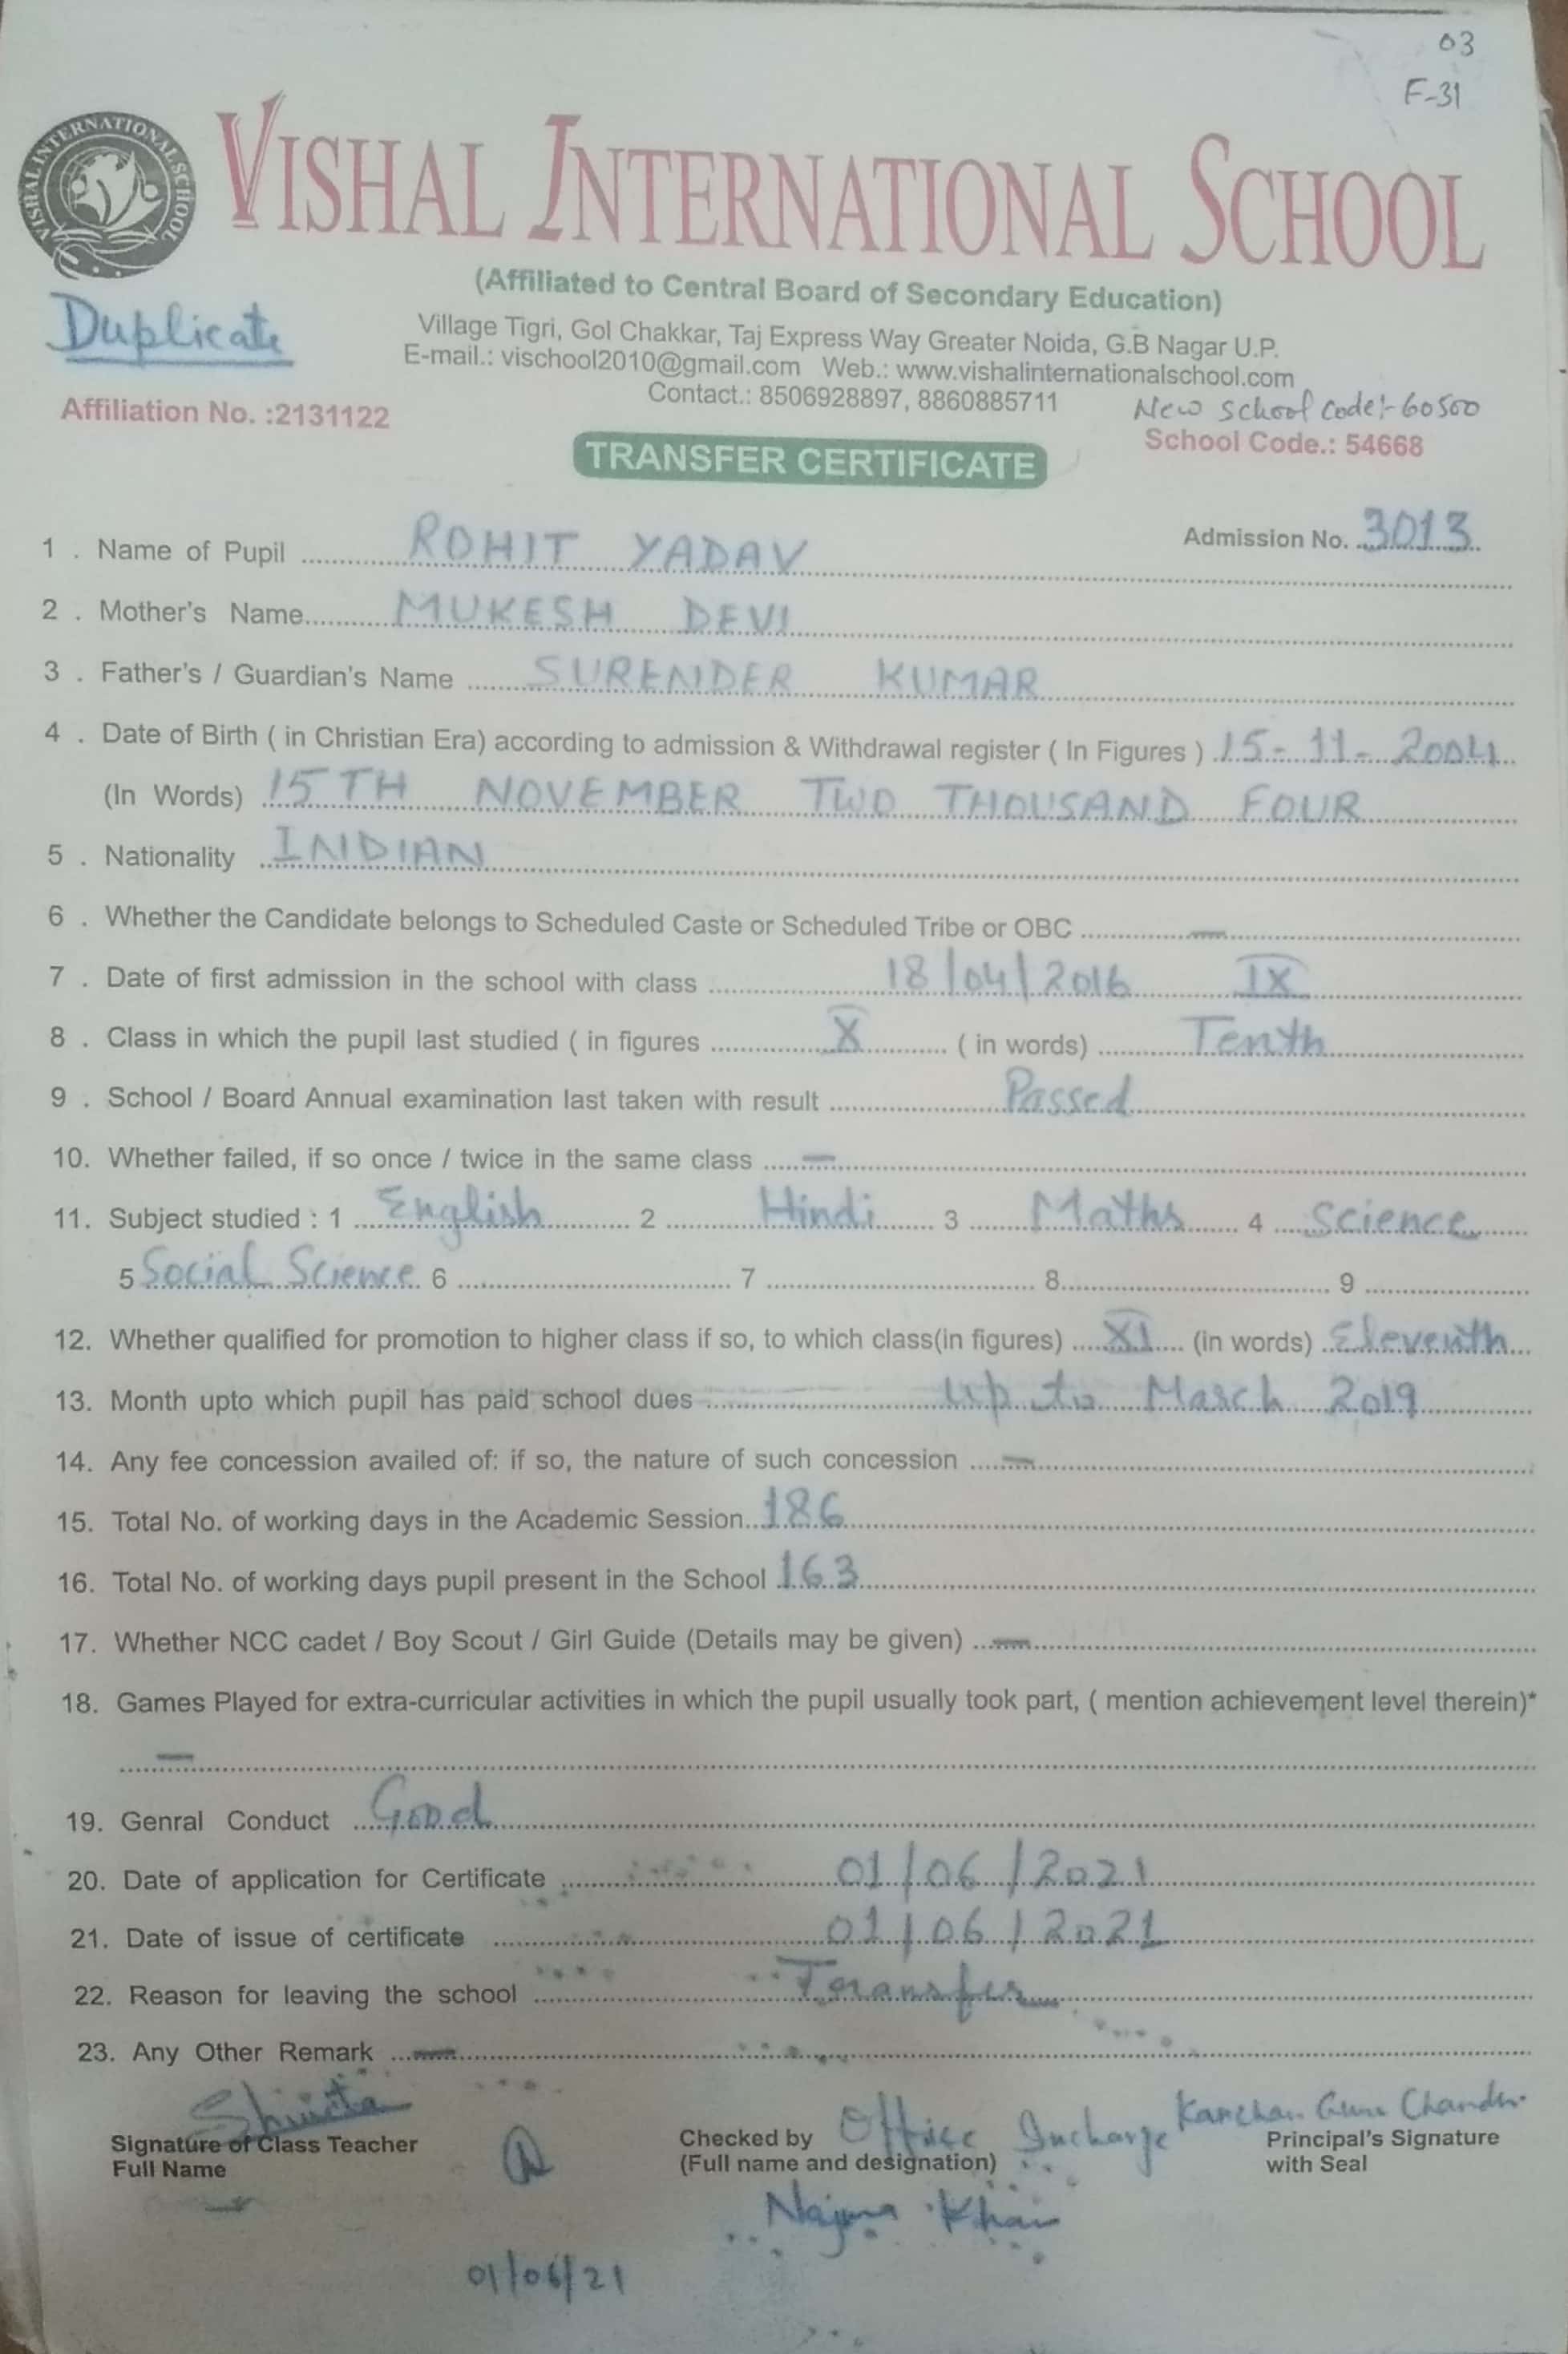 03
F-31
VISHAL INTERNATIONAL SCHOOL
VISHAL INTERNATIONAL SCHOOL
(Affiliated to Central Board of Secondary Education)
Duplicate
Village Tigri, Gol Chakkar, Taj Express Way Greater Noida, G.B Nagar U.P.
E-mail.: vischool2010@gmail.com Web.: www.vishalinternationalschool.com
Contact.: 8506928897, 8860885711
New school code:- 60500
Affiliation No. :2131122
School Code.: 54668
TRANSFER CERTIFICATE
Admission No. 3013
1 . Name of Pupil ROHIT YADAV
2 . Mother's Name MUKESH DEVI
3 . Father's / Guardian's Name SURENDER KUMAR
4 . Date of Birth ( in Christian Era) according to admission & Withdrawal register ( In Figures ) 15-11-2004
(In Words) 15TH NOVEMBER TWO THOUSAND FOUR
5 . Nationality INDIAN
6 . Whether the Candidate belongs to Scheduled Caste or Scheduled Tribe or OBC —
7 . Date of first admission in the school with class 18/04/2016 IX
8 . Class in which the pupil last studied ( in figures X ( in words) Tenth
9 . School / Board Annual examination last taken with result Passed
10. Whether failed, if so once / twice in the same class —
11. Subject studied : 1 English 2 Hindi 3 Maths 4 Science
5 Social Science 6 7 8 9
12. Whether qualified for promotion to higher class if so, to which class(in figures) XI (in words) Eleventh
13. Month upto which pupil has paid school dues up to March 2019
14. Any fee concession availed of: if so, the nature of such concession —
15. Total No. of working days in the Academic Session 186
16. Total No. of working days pupil present in the School 163
17. Whether NCC cadet / Boy Scout / Girl Guide (Details may be given) —
18. Games Played for extra-curricular activities in which the pupil usually took part, ( mention achievement level therein)*
—
19. Genral Conduct Good
20. Date of application for Certificate 01/06/2021
21. Date of issue of certificate 01/06/2021
22. Reason for leaving the school Transfer
23. Any Other Remark —
Signature of Class Teacher
Full Name
Checked by Office Incharge
(Full name and designation)
Khan
Kanchan
Principal's Signature
with Seal
01/06/21